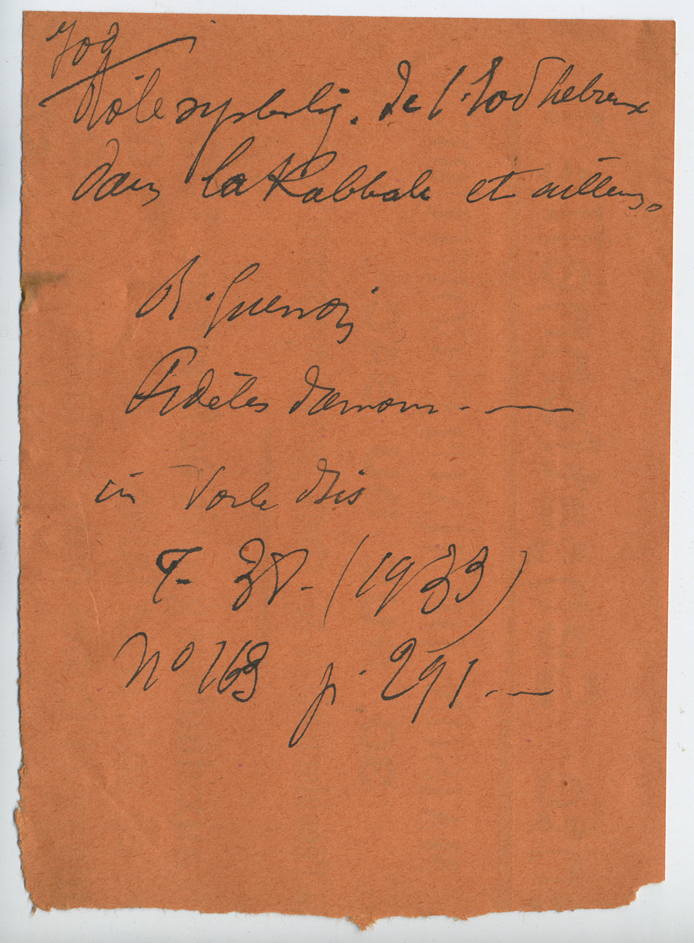 Iod
Rôle symboliq. de l'Iod hébreux
dans la Kabbale et ailleurs.
R. Guenon
Fidèles d'amour -
in Voile d'Isis
T- 38 - (1933)
n° 163 p. 291 -